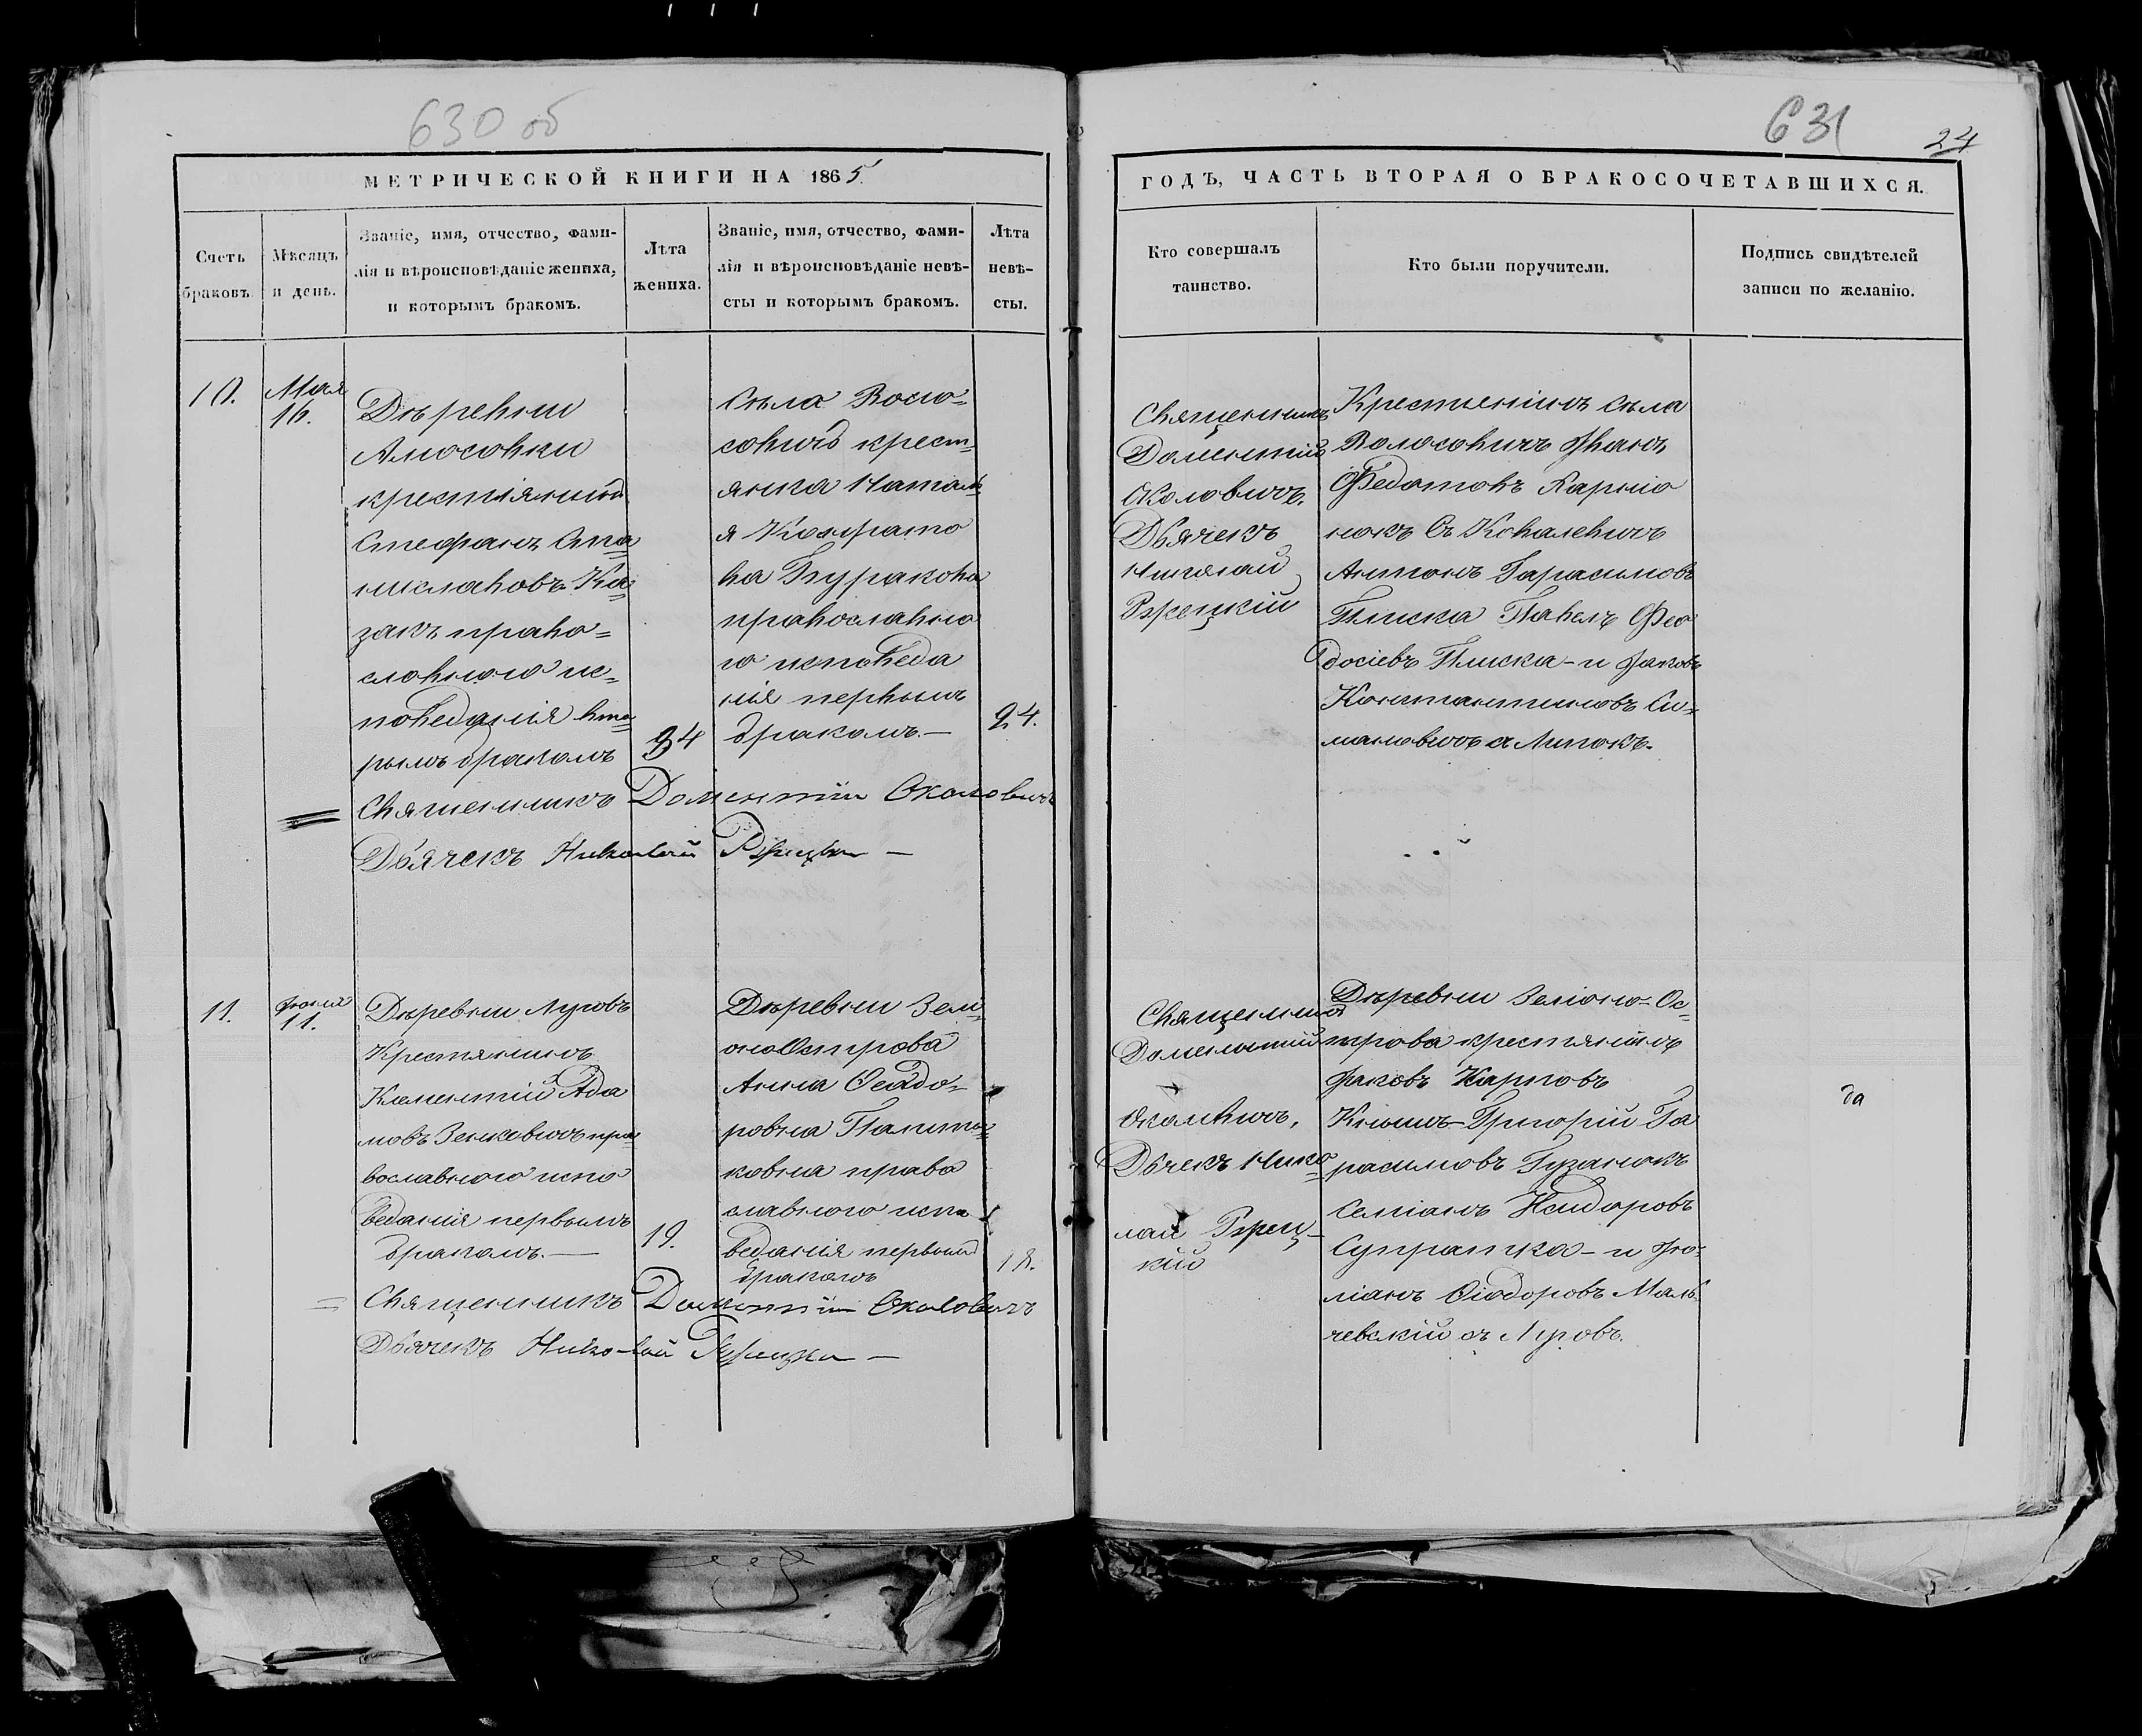 630 об
МЕТРИЧЕСКОЙ КНИГИ НА 1865
Счетъ браковъ.
Мѣсяцъ и день.
Званіе, имя, отчество, фами-
лія и вѣроисповѣданіе жениха,
и которымъ бракомъ.
Лѣта
жениха.
Званіе, имя, отчество, фами-
лія и вѣроисповѣданіе невѣ-
сты и которымъ бракомъ.
Лѣта
невѣ-
сты.
10.
Мая
16.
Дѣревни
Амосовки
крестіянинъ
Стефанъ Ста
ниславовъ Ка=
закъ право=
словного ис=
поведанія вто=
рымъ бракомъ
34
Сѣла
совичъ крест=
янка Натал
я Кондрато
ва Буракова
православно
го изповеда
нія первымъ
бракомъ.—
24.
Священникъ Доментіи Околовичъ
Дьячекъ Николай
11.
11.
Дѣревни Луговъ
Крестянинъ
Клементій Ада
мовъ Зенкевичъ пра
вославного испо
веданія первымъ
бракомъ.—
19.
Дѣревни Зели
оноОстрова
Анна Феадо=
ровна
ковна право
славного испо
веданія первымъ
бракомъ
18.
Священникъ Доментіи Околовичъ
Дьячекъ Николай
631
24
ГОДЪ, ЧАСТЬ ВТОРАЯ О БРАКОСОЧЕТАВШИХСЯ.
Кто совершалъ
таинство.
Кто были поручители.
Подпись свидѣтелей
записи по желанію.
Священникъ
Доментій
Околовичъ.
Дьячекъ
Николай
Ржецкій
Крестьенинъ сѣла
Волосовичъ Иванъ
Федотовъ Карпио
нокъ Съ Ковалевичъ
Антонъ Гарасимовъ
Плиска Павелъ Фео
досіевъ Плиска - и Яковъ
Константиновъ Си=
мановичъ
Священникъ
Доментій
Околвичъ,
Дьчекъ Нико
лай Ржец-
кій
Дѣревни Зеліоно=Ос=
трова крестянинъ
Яковъ Карповъ
Григорій Га
расимовъ Гузанокъ
Семіонъ Исидоровъ
Супрапка - и Юо=
ліанъ Фіодоровъ Маль
чевскій съ Луговъ.
да